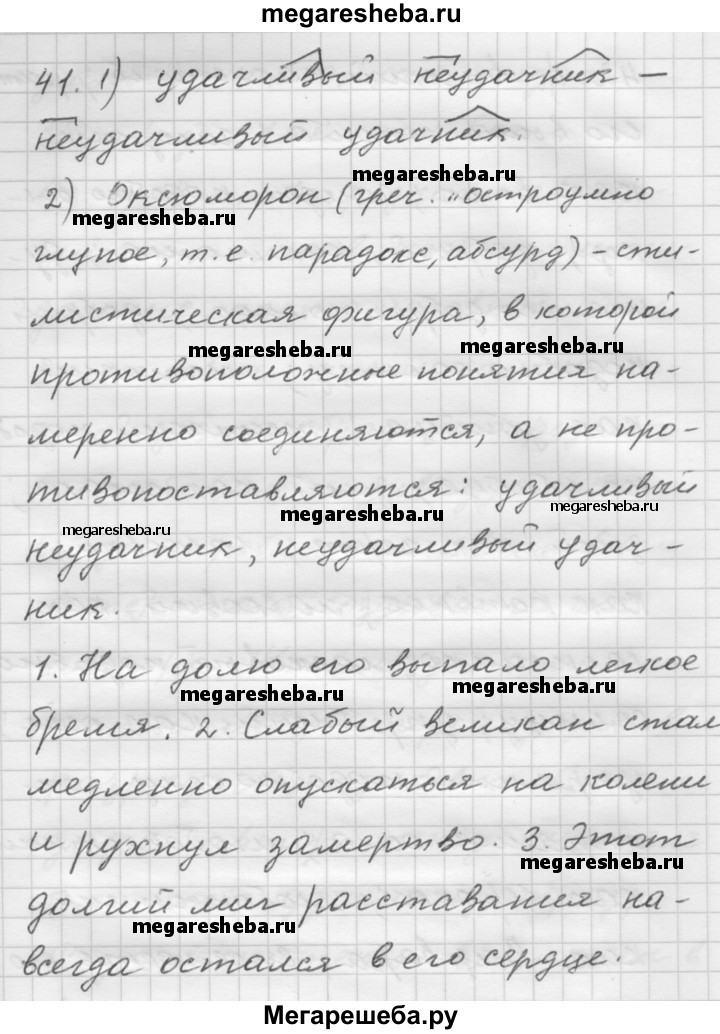 megaresheba.ru
41. 1) удачливый неудачник –
неудачливый удачник.
megaresheba.ru
2) Оксюморон (греч. „остроумно
megaresheba.ru
глупое, т.е. парадокс, абсурд) – сти-
листическая фигура, в которой
megaresheba.ru megaresheba.ru
противоположные понятия на-
меренно соединяются, а не про-
тивопоставляются: удачливый
megaresheba.ru megaresheba.ru megaresheba.ru
неудачник, неудачливый удач-
ник.
1. На долю его выпало легкое
megaresheba.ru megaresheba.ru
бремя. 2. Слабый великан стал
медленно опускаться на колени
и рухнул замертво. 3. Этот
megaresheba.ru
долгий миг расставания на-
megaresheba.ru
всегда остался в его сердце.
Мегарешеба.ру